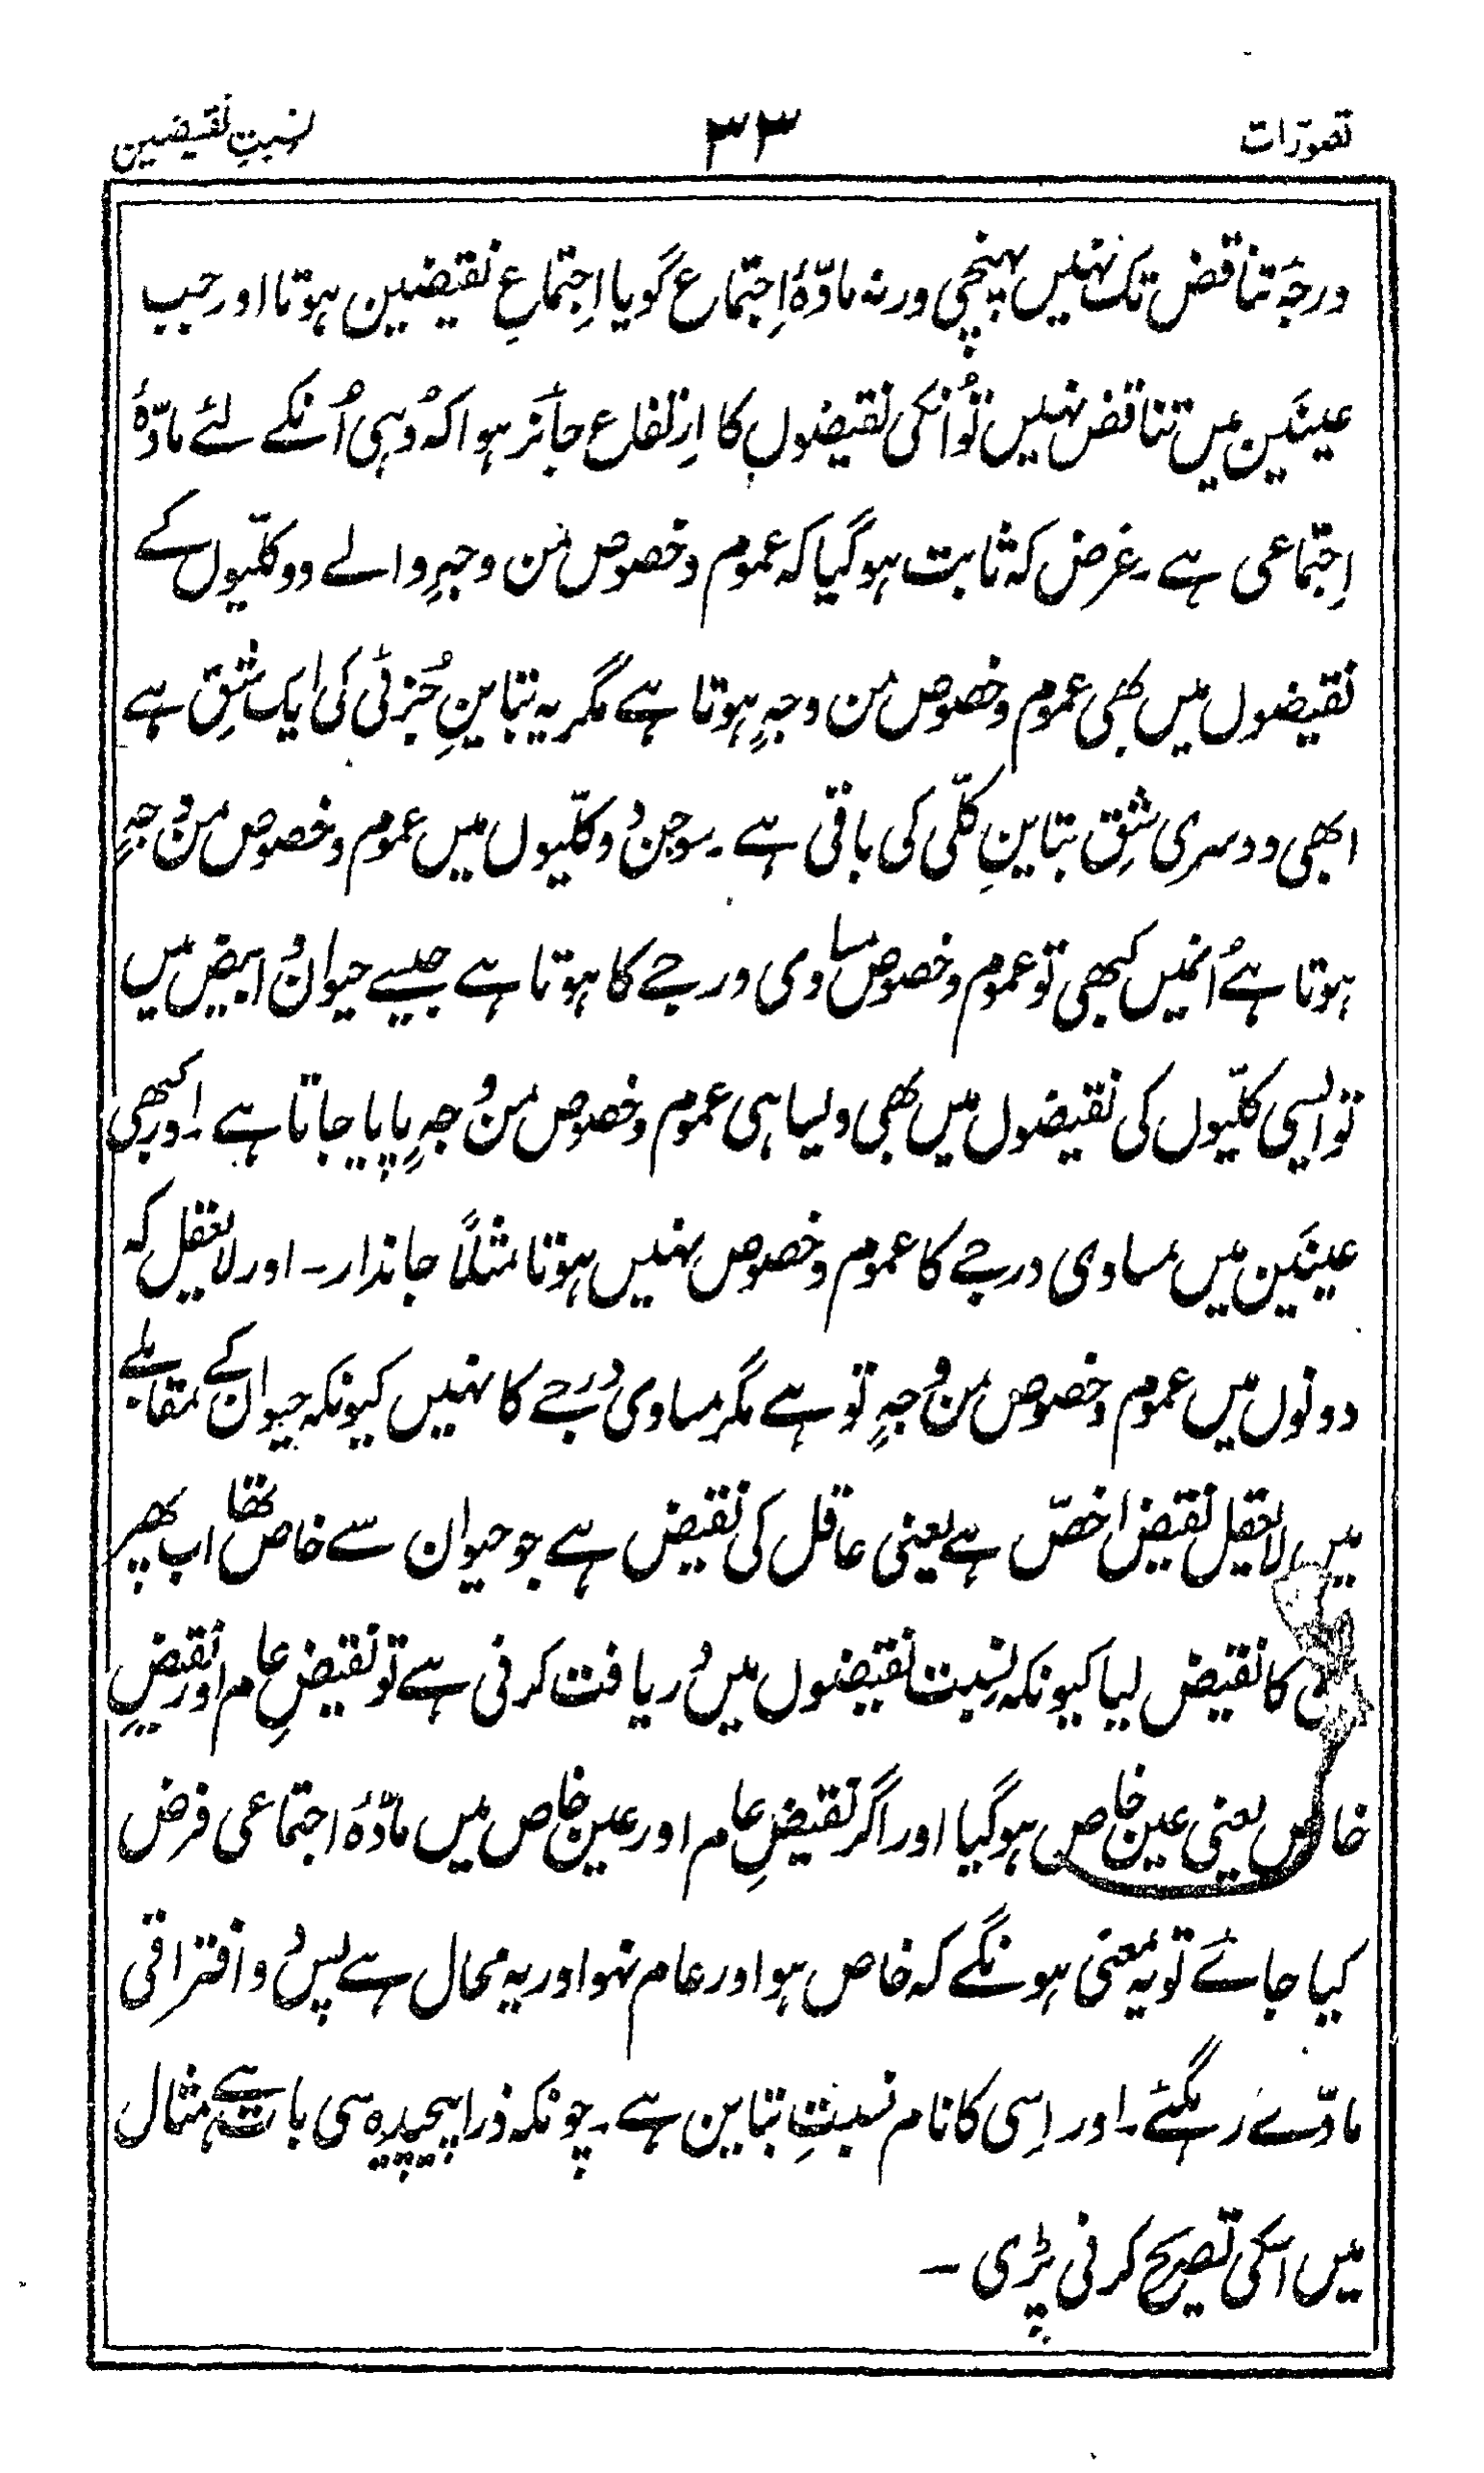 تصوّرات ۳۳ نسبتِ نقیضین
درجۂ تناقض تک نہیں پہنچی ورنہ مادّۂ اِجتماع گویا اِجتماعِ نقیضین ہوتا اور جب
عینَین میں تناقض نہیں تو اُنکی نقیضوں کا اِرتفاع جائز ہوا کہ وُہی اُنکے لئے مادّۂ
اِجتماعی ہے۔ غرض کہ ثابت ہو گیا کہ عموم و خصوص من وجہٍ والے دو کلّیوں کے
نقیضوں میں بھی عموم و خصوص من وجہٍ ہوتا ہے مگر یہ تباینِ جُزئی کی ایک شِق ہے
ابھی دوسری شِق تباینِ کلّی کی باقی ہے۔ سو جن دو کلّیوں میں عموم و خصوص من وجہٍ
ہوتا ہے اُنمیں کبھی تو عموم و خصوص مساوی درجے کا ہوتا ہے جیسے حیوان و ابیض میں
تو ایسی کلّیوں کی نقیضوں میں بھی ویسا ہی عموم و خصوص من وجہٍ پایا جاتا ہے۔ اور کبھی
عینَین میں مساوی درجے کا عموم و خصوص نہیں ہوتا مثلاً جاندار۔ اور لا یعقل کہ
دونوں میں عموم و خصوص من وجہٍ تو ہے مگر مساوی درجے کا نہیں کیونکہ حیوان کے مقابلے
میں لا یعقل نقیض اخصّ ہے یعنی عاقل کی نقیض ہے جو حیوان سے خاص تھا اب پھر
کا نقیض لیا کیونکہ نسبت نقیضوں میں دریافت کرنی ہے تو نقیضِ عام اور نقیضِ
خاص یعنی عین خاص ہو گیا اور اگر نقیضِ عام اور عین خاص میں مادّۂ اجتماعی فرض
کیا جائے تو یہ معنی ہونگے کہ خاص ہو اور عام نہو اور یہ محال ہے پس دو افتراقی
مادّے رہگئے۔ اور اِسی کا نام نسبتِ تباین ہے۔ چونکہ ذرا پیچیدہ سی بات ہے مثال
میں اسکی تصریح کرنی پڑی ۔